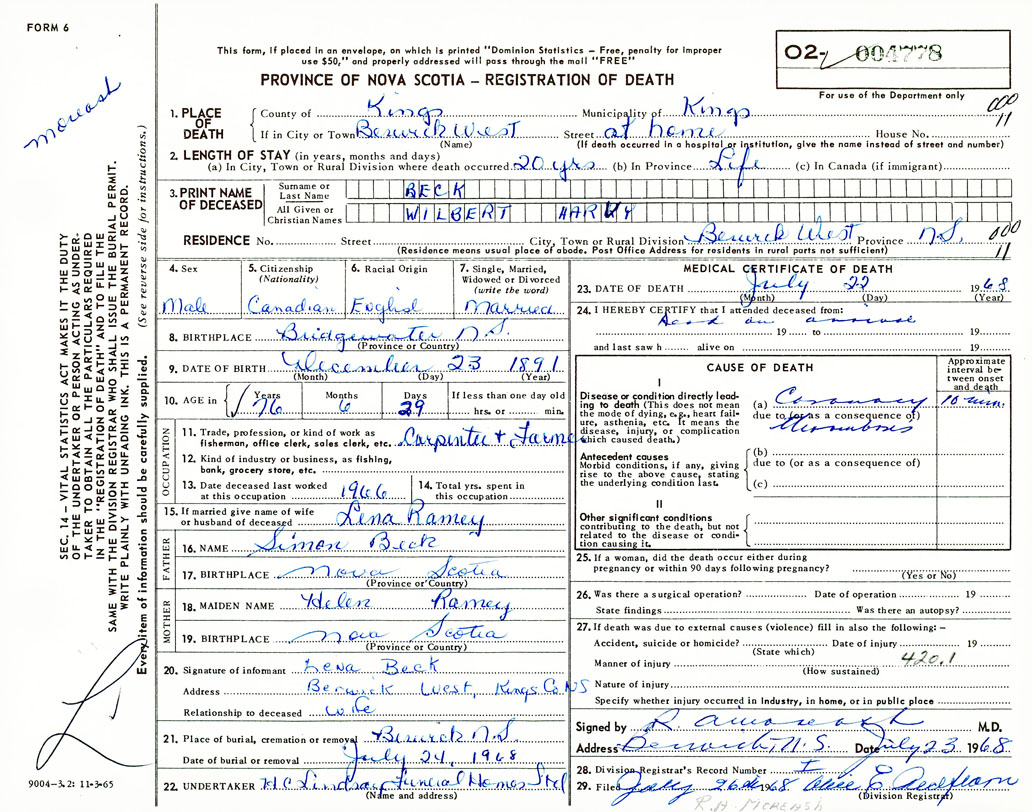 FORM 6
This form, if placed in an envelope, on which is printed "Dominion Statistics – Free, penalty for improper
use $50," and properly addressed will pass through the mail "FREE"
PROVINCE OF NOVA SCOTIA – REGISTRATION OF DEATH
02- 004778
For use of the Department only
moreash
SEC. 14 – VITAL STATISTICS ACT MAKES IT THE DUTY
OF THE UNDERTAKER OR PERSON ACTING AS UNDER-
TAKER TO OBTAIN ALL THE PARTICULARS REQUIRED
IN THE "REGISTRATION OF DEATH" AND TO FILE THE
SAME WITH THE DIVISION REGISTRAR WHO SHALL ISSUE THE BURIAL PERMIT.
WRITE PLAINLY WITH UNFADING INK. THIS IS A PERMANENT RECORD.
Every item of information should be carefully supplied. (See reverse side for instructions.)
1. PLACE OF DEATH
County of Kings Municipality of Kings
000
11
If in City or Town Berwick West Street at home House No.
(Name) (If death occurred in a hospital or institution, give the name instead of street and number)
2. LENGTH OF STAY (in years, months and days)
(a) In City, Town or Rural Division where death occurred 20 yrs (b) In Province Life (c) In Canada (if immigrant)
3. PRINT NAME OF DECEASED
Surname or Last Name BECK
All Given or Christian Names WILBERT HARVY
RESIDENCE No. Street City, Town or Rural Division Berwick West Province N.S. 000
(Residence means usual place of abode. Post Office Address for residents in rural parts not sufficient) 11
4. Sex
Male
5. Citizenship (Nationality)
Canadian
6. Racial Origin
English
7. Single, Married, Widowed or Divorced (write the word)
Married
8. BIRTHPLACE Bridgewater N.S.
(Province or Country)
9. DATE OF BIRTH December 23 1891
(Month) (Day) (Year)
10. AGE in Years 76 Months 6 Days 29 If less than one day old hrs. or min.
OCCUPATION
11. Trade, profession, or kind of work as
fisherman, office clerk, sales clerk, etc. Carpenter & Farmer
12. Kind of industry or business, as fishing,
bank, grocery store, etc.
13. Date deceased last worked
at this occupation 1966
14. Total yrs. spent in
this occupation
15. If married give name of wife
or husband of deceased Lena Ramey
FATHER
16. NAME Simon Beck
17. BIRTHPLACE Nova Scotia
(Province or Country)
MOTHER
18. MAIDEN NAME Helen Ramey
19. BIRTHPLACE Nova Scotia
(Province or Country)
20. Signature of informant Lena Beck
Address Berwick West, Kings Co NS
Relationship to deceased wife
21. Place of burial, cremation or removal Berwick N.S.
Date of burial or removal July 24, 1968
22. UNDERTAKER H C Lindsay Funeral Homes Ltd
(Name and address)
9004-3.2: 11-3-65
MEDICAL CERTIFICATE OF DEATH
23. DATE OF DEATH July 22 1968
(Month) (Day) (Year)
24. I HEREBY CERTIFY that I attended deceased from:
Dead on
19 to 19
and last saw h alive on 19
CAUSE OF DEATH
Approximate interval between onset and death
I
Disease or condition directly lead-
ing to death (This does not mean
the mode of dying, e.g., heart fail-
ure, asthenia, etc. It means the
disease, injury, or complication
which caused death.)
(a) Coronary 10 min.
due to (or as a consequence of)
thrombosis
Antecedent causes
Morbid conditions, if any, giving
rise to the above cause, stating
the underlying condition last.
(b)
due to (or as a consequence of)
(c)
II
Other significant conditions
contributing to the death, but not
related to the disease or condi-
tion causing it.
25. If a woman, did the death occur either during
pregnancy or within 90 days following pregnancy?
(Yes or No)
26. Was there a surgical operation? Date of operation 19
State findings Was there an autopsy?
27. If death was due to external causes (violence) fill in also the following: –
Accident, suicide or homicide? Date of injury 19
(State which)
Manner of injury 420.1
(How sustained)
Nature of injury
Specify whether injury occurred in Industry, in home, or in public place
Signed by M.D.
Address Berwick, N.S. Date July 23 1968
28. Division Registrar's Record Number
29. Filed July 26th 1968
(Division Registrar)